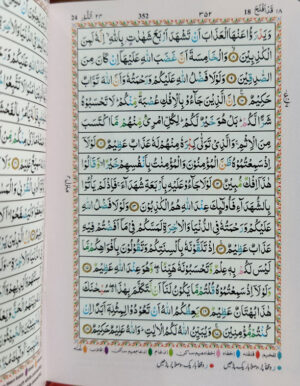 قد افلح ١٨ 18 ٣٥٢ 352 النور ٢٤ 24
وَيَدْرَؤُا عَنْهَا الْعَذَابَ اَنْ تَشْهَدَ اَرْبَعَ شَهٰدٰتٍۭ بِاللّٰهِ ۙ اِنَّهٗ لَمِنَ
الْكٰذِبِيْنَ ۝ وَالْخَامِسَةَ اَنَّ غَضَبَ اللّٰهِ عَلَيْهَاۤ اِنْ كَانَ مِنَ
الصّٰدِقِيْنَ ۝ وَلَوْلَا فَضْلُ اللّٰهِ عَلَيْكُمْ وَرَحْمَتُهٗ وَاَنَّ اللّٰهَ تَوَّابٌ
حَكِيْمٌ ۝ اِنَّ الَّذِيْنَ جَآءُوْ بِالْاِفْكِ عُصْبَةٌ مِّنْكُمْ ؕ لَا تَحْسَبُوْهُ
شَرًّا لَّكُمْ ؕ بَلْ هُوَ خَيْرٌ لَّكُمْ ؕ لِكُلِّ امْرِئٍ مِّنْهُمْ مَّا اكْتَسَبَ
مِنَ الْاِثْمِ ۚ وَالَّذِيْ تَوَلّٰى كِبْرَهٗ مِنْهُمْ لَهٗ عَذَابٌ عَظِيْمٌ ۝ لَوْلَاۤ
اِذْ سَمِعْتُمُوْهُ ظَنَّ الْمُؤْمِنُوْنَ وَالْمُؤْمِنٰتُ بِاَنْفُسِهِمْ خَيْرًا ۙ وَّقَالُوْا
هٰذَاۤ اِفْكٌ مُّبِيْنٌ ۝ لَوْلَا جَآءُوْ عَلَيْهِ بِاَرْبَعَةِ شُهَدَآءَ ۚ فَاِذْ لَمْ يَاْتُوْا
بِالشُّهَدَآءِ فَاُولٰٓئِكَ عِنْدَ اللّٰهِ هُمُ الْكٰذِبُوْنَ ۝ وَلَوْلَا فَضْلُ اللّٰهِ
عَلَيْكُمْ وَرَحْمَتُهٗ فِي الدُّنْيَا وَالْاٰخِرَةِ لَمَسَّكُمْ فِيْ مَاۤ اَفَضْتُمْ فِيْهِ
عَذَابٌ عَظِيْمٌ ۝ اِذْ تَلَقَّوْنَهٗ بِاَلْسِنَتِكُمْ وَتَقُوْلُوْنَ بِاَفْوَاهِكُمْ مَّا
لَيْسَ لَكُمْ بِهٖ عِلْمٌ وَّتَحْسَبُوْنَهٗ هَيِّنًا ۖ وَّهُوَ عِنْدَ اللّٰهِ عَظِيْمٌ ۝
وَلَوْلَاۤ اِذْ سَمِعْتُمُوْهُ قُلْتُمْ مَّا يَكُوْنُ لَنَاۤ اَنْ نَّتَكَلَّمَ بِهٰذَا ۖ سُبْحٰنَكَ
هٰذَا بُهْتَانٌ عَظِيْمٌ ۝ يَعِظُكُمُ اللّٰهُ اَنْ تَعُوْدُوْا لِمِثْلِهٖۤ اَبَدًا اِنْ
كُنْتُمْ مُّؤْمِنِيْنَ ۝ وَيُبَيِّنُ اللّٰهُ لَكُمُ الْاٰيٰتِ ؕ وَاللّٰهُ عَلِيْمٌ حَكِيْمٌ ۝